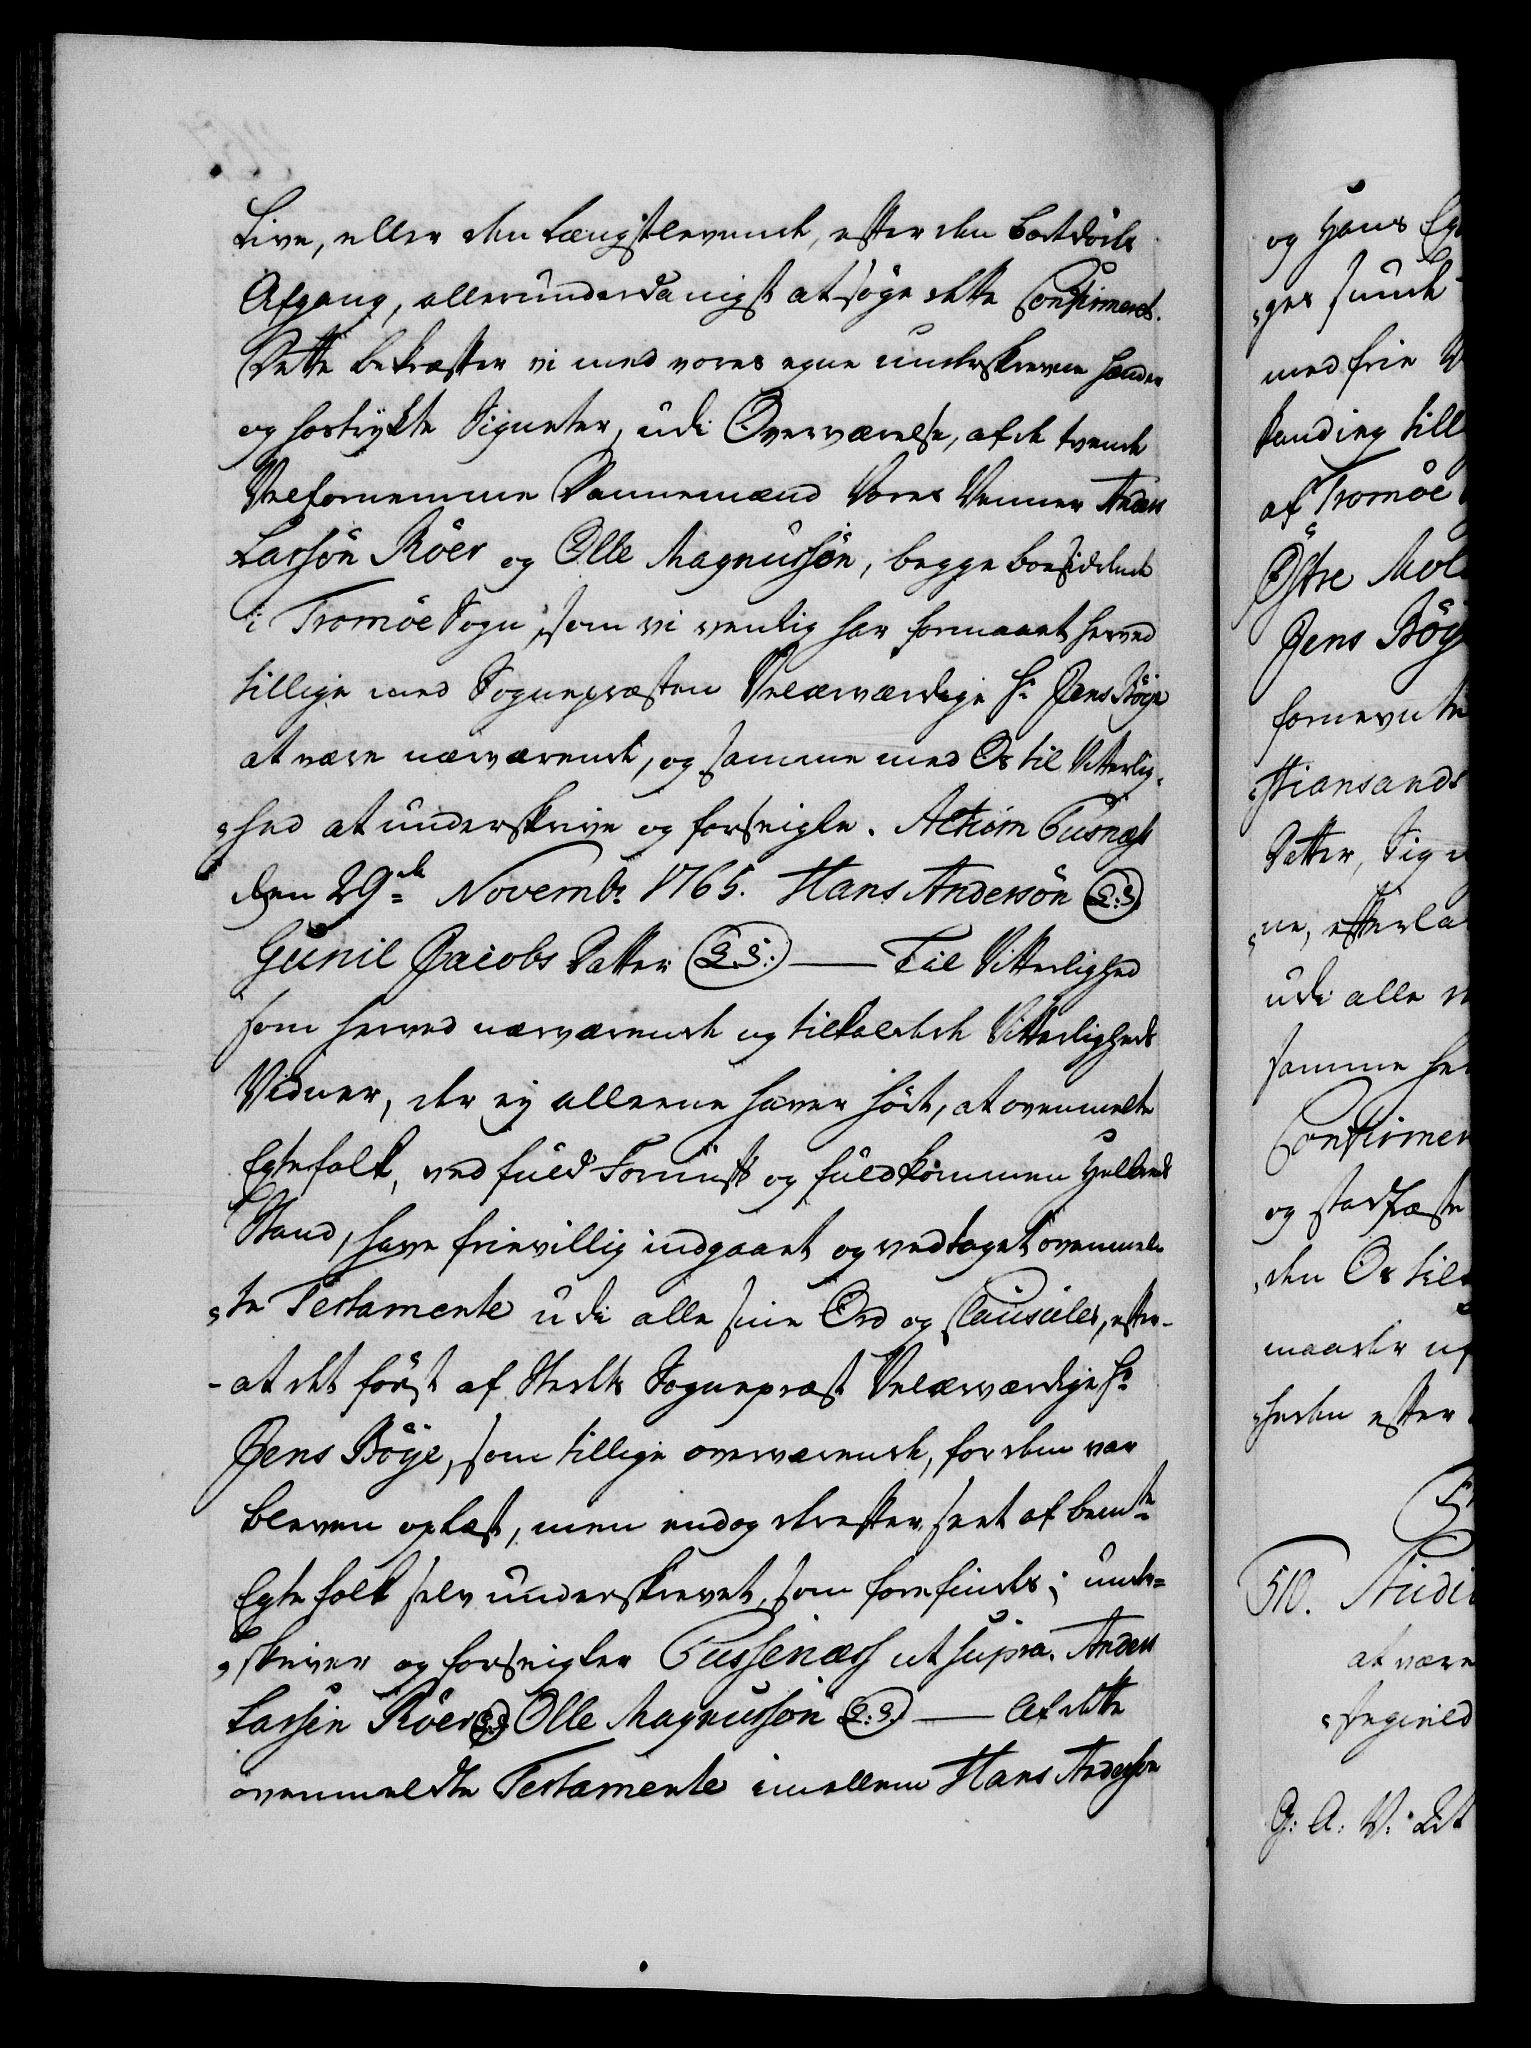 Live, eller den Længstlevende, efter den bortdödes
Afgang, allerunderdanigst at söge dette Confirmeret.
Dette bekræfter vi med vores egne underskrevne Hænder
og hostrykte Signeter, udi Overværelse, af de tvende
Velfornemme Dannemænd Vores Venner Anders
Larsön Röer og Olle Magnussön, begge boesiddende
i Tromöe Sogn, som vi venlig har formaaet herved
tillige med Sognepræsten Velærværdige Hr Jens Böye
at være nærværende, og samme med Os til Vitterlig¬
hed at underskrive og forseigle. Actum Pusnæs
den 29de Novembr 1765. Hans Andersön (L:S.)
Gunil Jacobs Datter (L.S:) — Til Vitterlighed
som herved nærværende og tilkaldede Vitterligheds
Vidner, der ej alleene haver hört, at ovenmelte
Egtefolk, ved fuld Fornuft og fuldkommen Helbreds
Stand, have frievillig indgaaet og vedtaget ovenmel¬
te Testamente udi alle sine Ord og Clausuler, efter¬
at det först af Stedets Sognepræst Velærværdige Hr
Jens Böye, som tillige overværende, for dem var
bleven oplæst, men endog derefter seet af bemte
Egtefolk selv underskrevet, som forefindes; under¬
skriver og forseigler Pussenæss ut supra. Anders
Larsen Röer (L.S.) Olle Magnussön (L:S.) — Af dette
ovenmeldte Testamente imellem Hans Andersön
og Hans Eg
ges
med frie V
kending till
af Tromöe
Östre Mol
Jens Böy
fornevnte
stiansands
Datter, Sig
ne, efterla
udi alle
samme he
Confirmer
og stadfæste
den Os til
maader
heden efter
510.
at være
G: A: V: